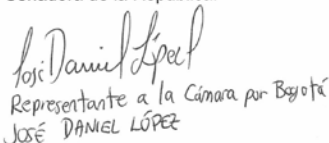 Senadora de la República.
José Daniel López
Representante a la Cámara por Bogotá
JOSÉ DANIEL LÓPEZ